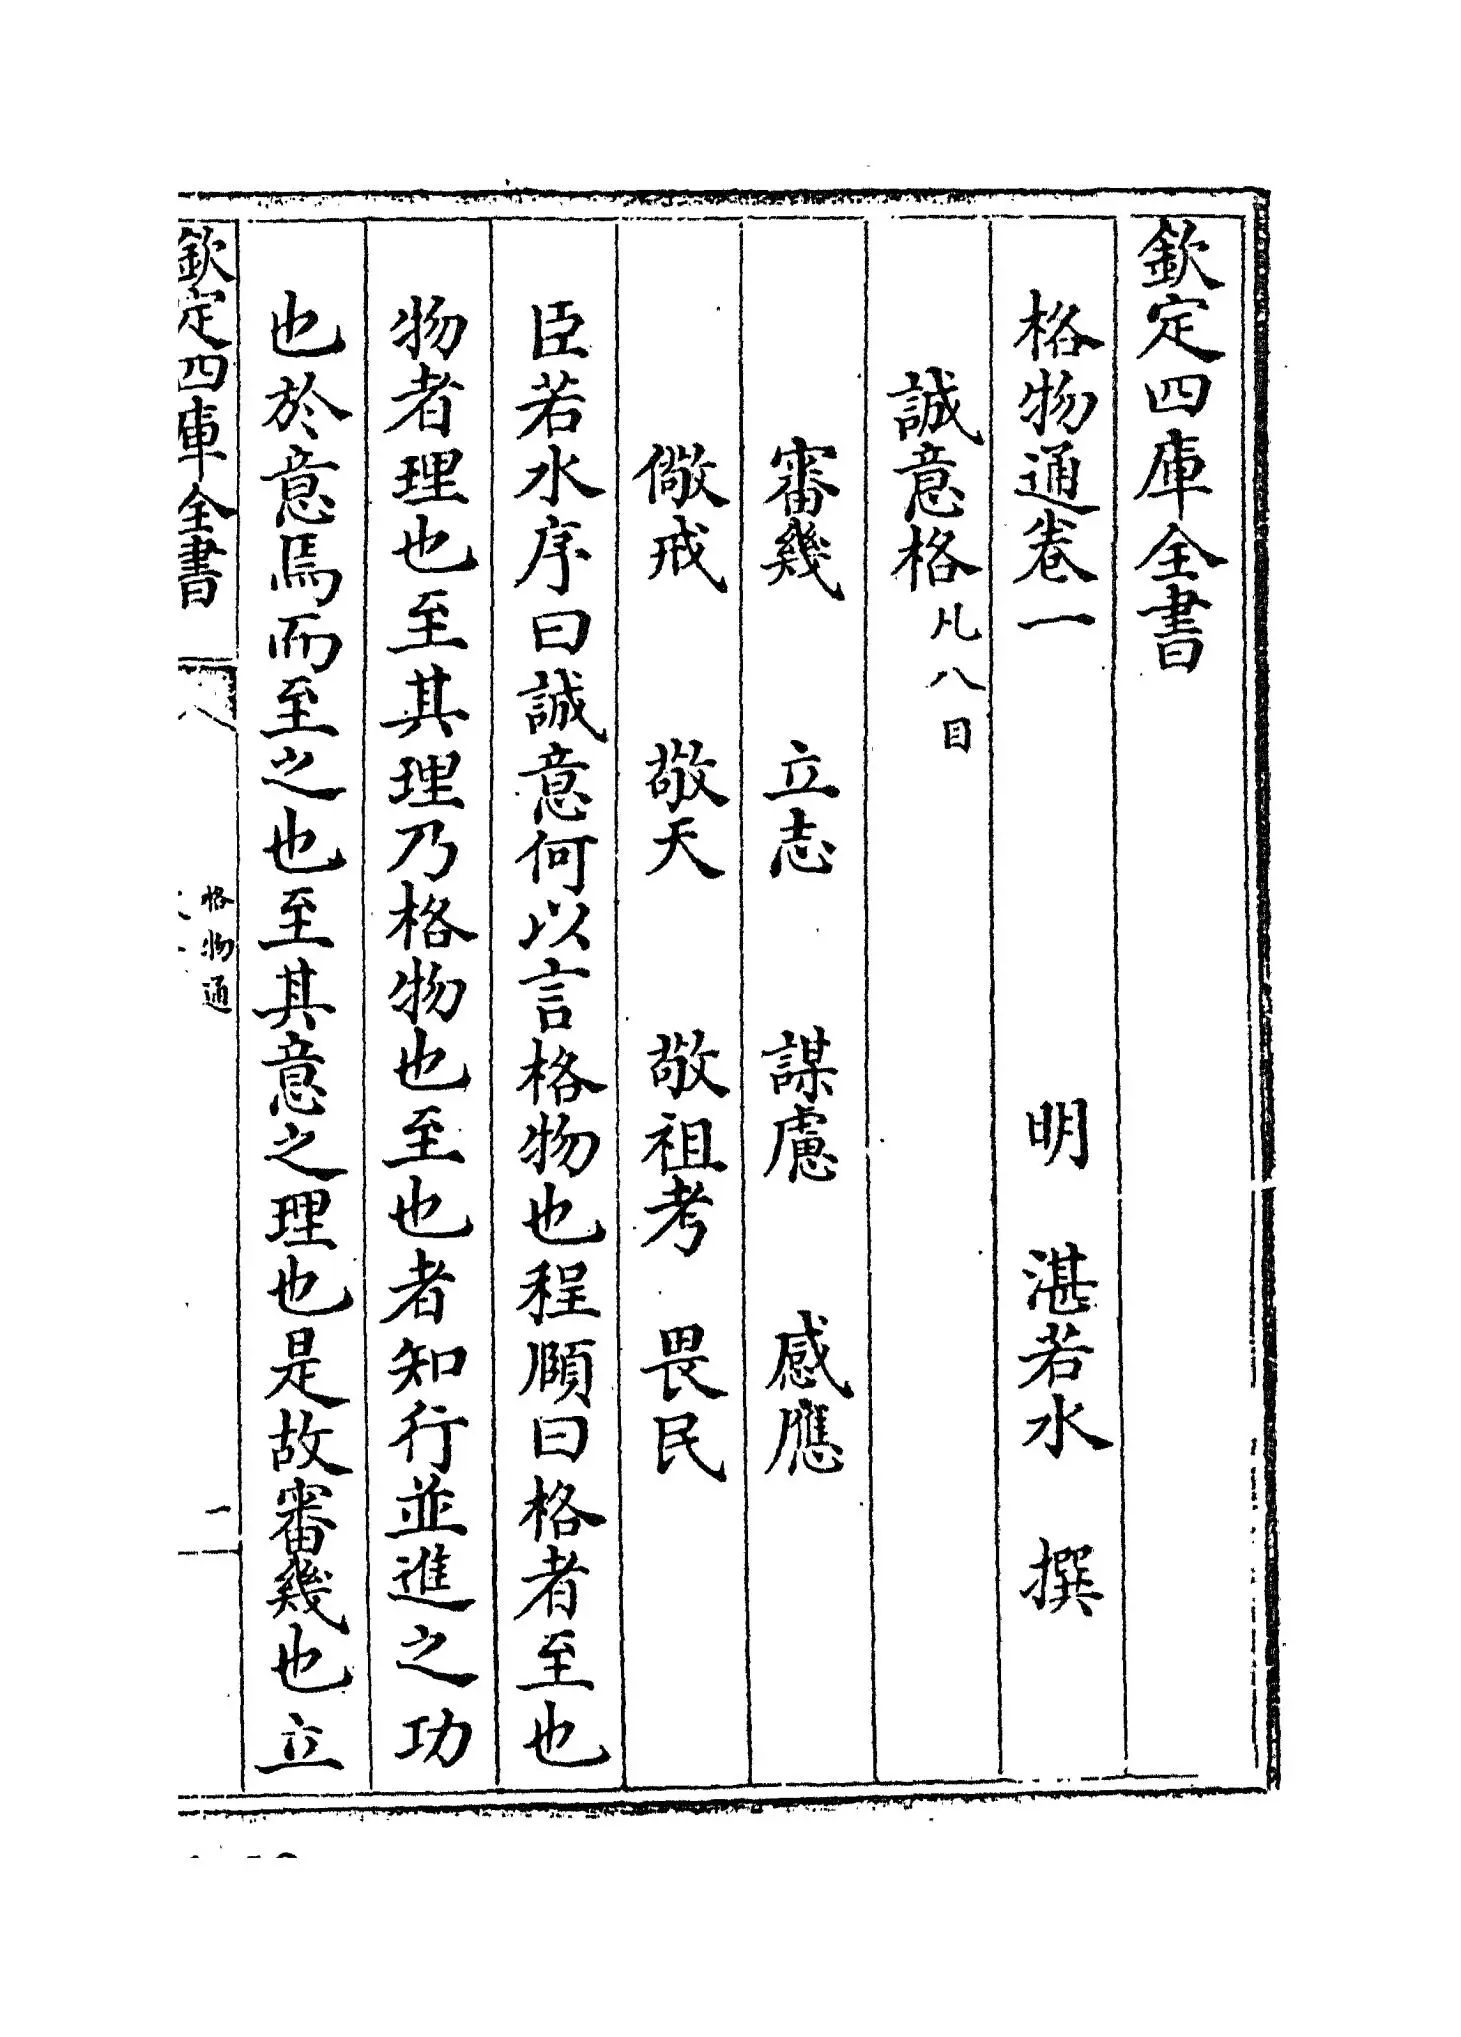 欽定四庫全書
格物通卷一 明 湛若水 撰
誠意格凡八目
審幾 立志 謀慮 感應
儆戒 敬天 敬祖考 畏民
臣若水序曰誠意何以言格物也程頤曰格者至也
物者理也至其理乃格物也至也者知行並進之功
也於意焉而至之也至其意之理也是故審幾也立
欽定四庫全書 格物通 一